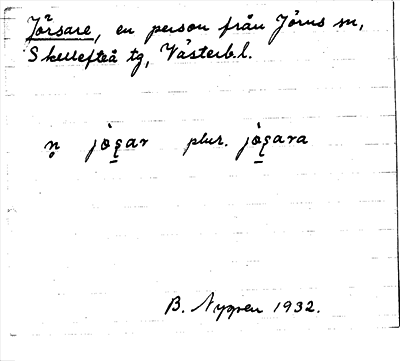 Jörsare, en person från Jörns sn,
Skellefteå tg, Västerb.l.
n̥ jò̱ʂar plur. jò̱ʂara
B. Nygren 1932.